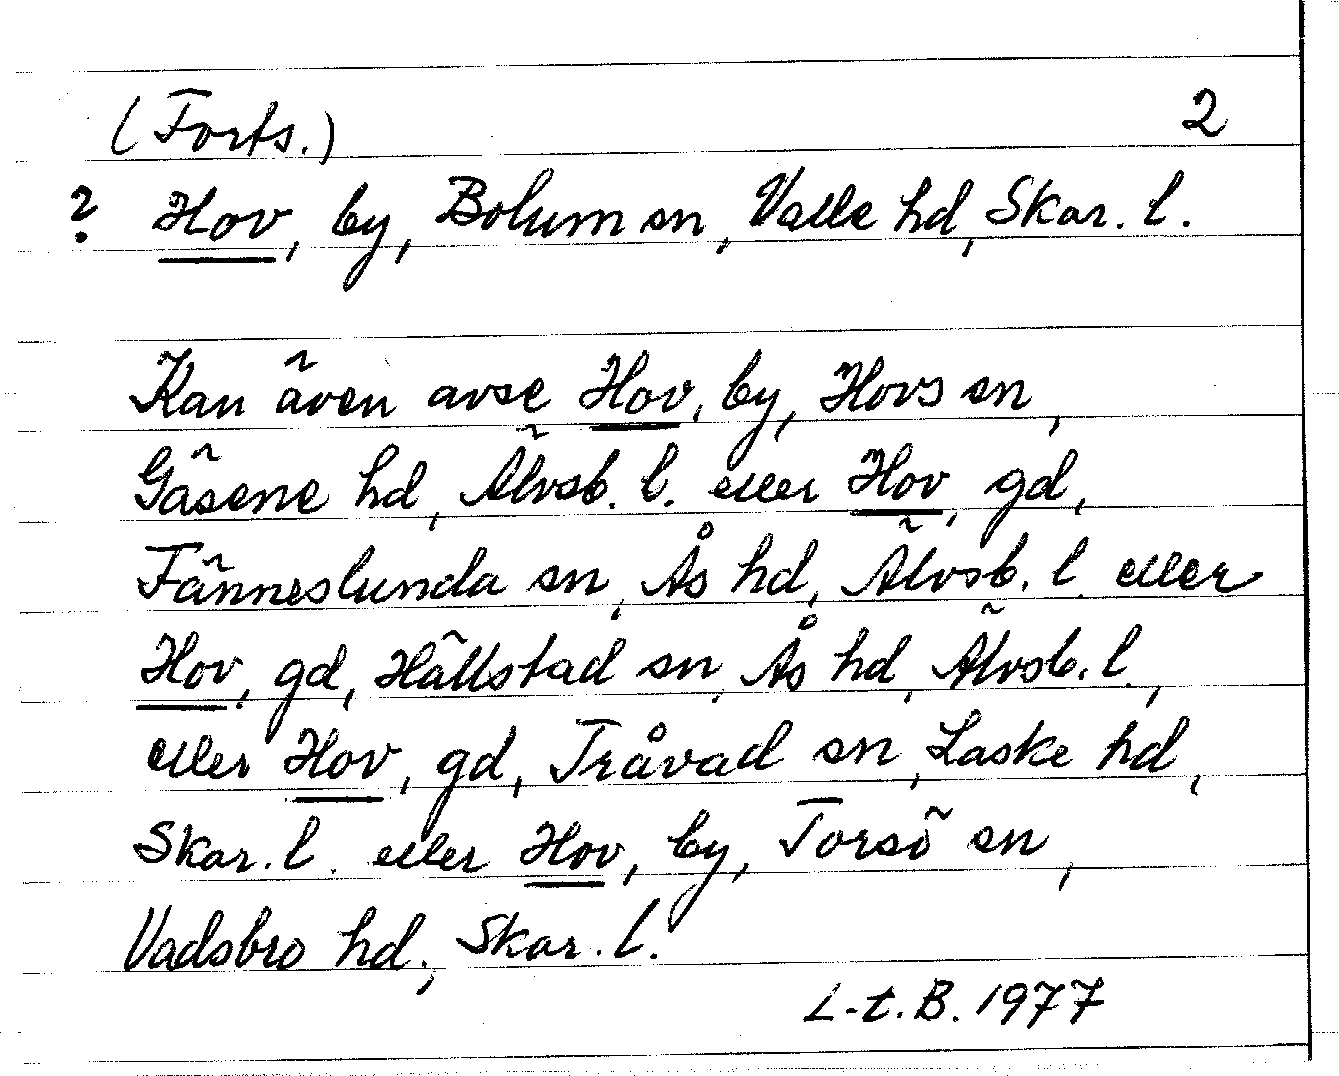 (Forts.) 2
? Hov, by, Bolum sn, Valle hd, Skar. l.
Kan även avse Hov, by, Hovs sn,
Gäsene hd, Älvsb. l. eller Hov, gd,
Fänneslunda sn, Ås hd, Älvsb. l. eller
Hov, gd, Hällstad sn, Ås hd, Älvsb. l.,
eller Hov, gd, Tråvad sn, Laske hd,
Skar. l. eller Hov, by, Torsö sn,
Vadsbro hd, Skar. l.
L-t. B. 1977